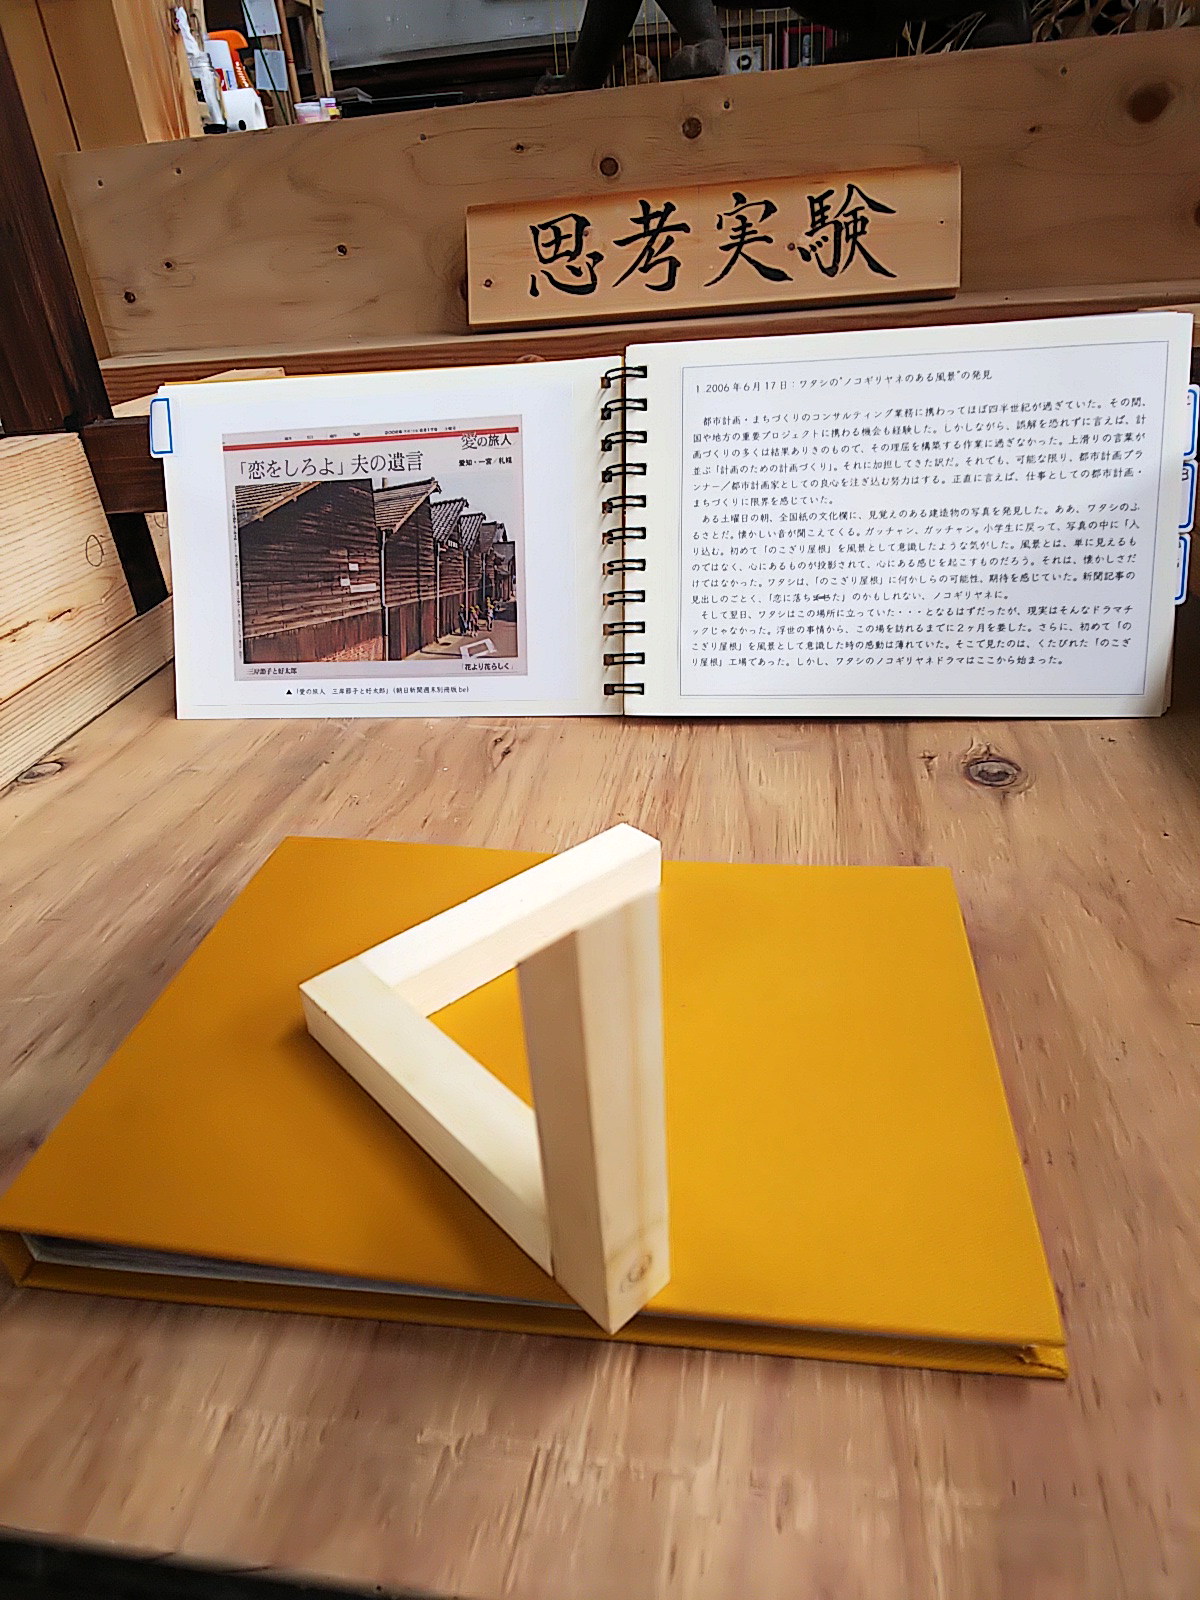 思考実験
愛の旅人
「恋をしろよ」夫の遺言
愛知・一宮/札幌
三岸節子と好太郎
「花より花らしく」
▲「愛の旅人 三岸節子と好太郎」(朝日新聞週末別冊版be)
1.2006年6月17日:ワタシの"ノコギリヤネのある風景"の発見
都市計画・まちづくりのコンサルティング業務に携わってほぼ四半世紀が過ぎていた。その間、
国や地方の重要プロジェクトに携わる機会も経験した。しかしながら、誤解を恐れずに言えば、計
画づくりの多くは結果ありきのもので、その理屈を構築する作業に過ぎなかった。上滑りの言葉が
並ぶ「計画のための計画づくり」。それに加担してきた訳だ。それでも、可能な限り、都市計画プラ
ンナー/都市計画家としての良心を注ぎ込む努力はする。正直に言えば、仕事としての都市計画・
まちづくりに限界を感じていた。
ある土曜日の朝、全国紙の文化欄に、見覚えのある建造物の写真を発見した。ああ、ワタシのふ
るさとだ。懐かしい音が聞こえてくる。ガッチャン、ガッチャン。小学生に戻って、写真の中に「入
り込む。初めて「のこぎり屋根」を風景として意識したような気がした。風景とは、単に見えるも
のではなく、心にあるものが投影されて、心にある感じを起こすものだろう。それは、懐かしさだ
けではなかった。ワタシは、「のこぎり屋根」に何かしらの可能性、期待を感じていた。新聞記事の
見出しのごとく、「恋に落ちた」のかもしれない、ノコギリヤネに。
そして翌日、ワタシはこの場所に立っていた・・・となるはずだったが、現実はそんなドラマチ
ックじゃなかった。浮世の事情から、この場を訪れるまでに2ヶ月を要した。さらに、初めて「の
こぎり屋根」を風景として意識した時の感動は薄れていた。そこで見たのは、くたびれた「のこぎ
り屋根」工場であった。しかし、ワタシのノコギリヤネドラマはここから始まった。